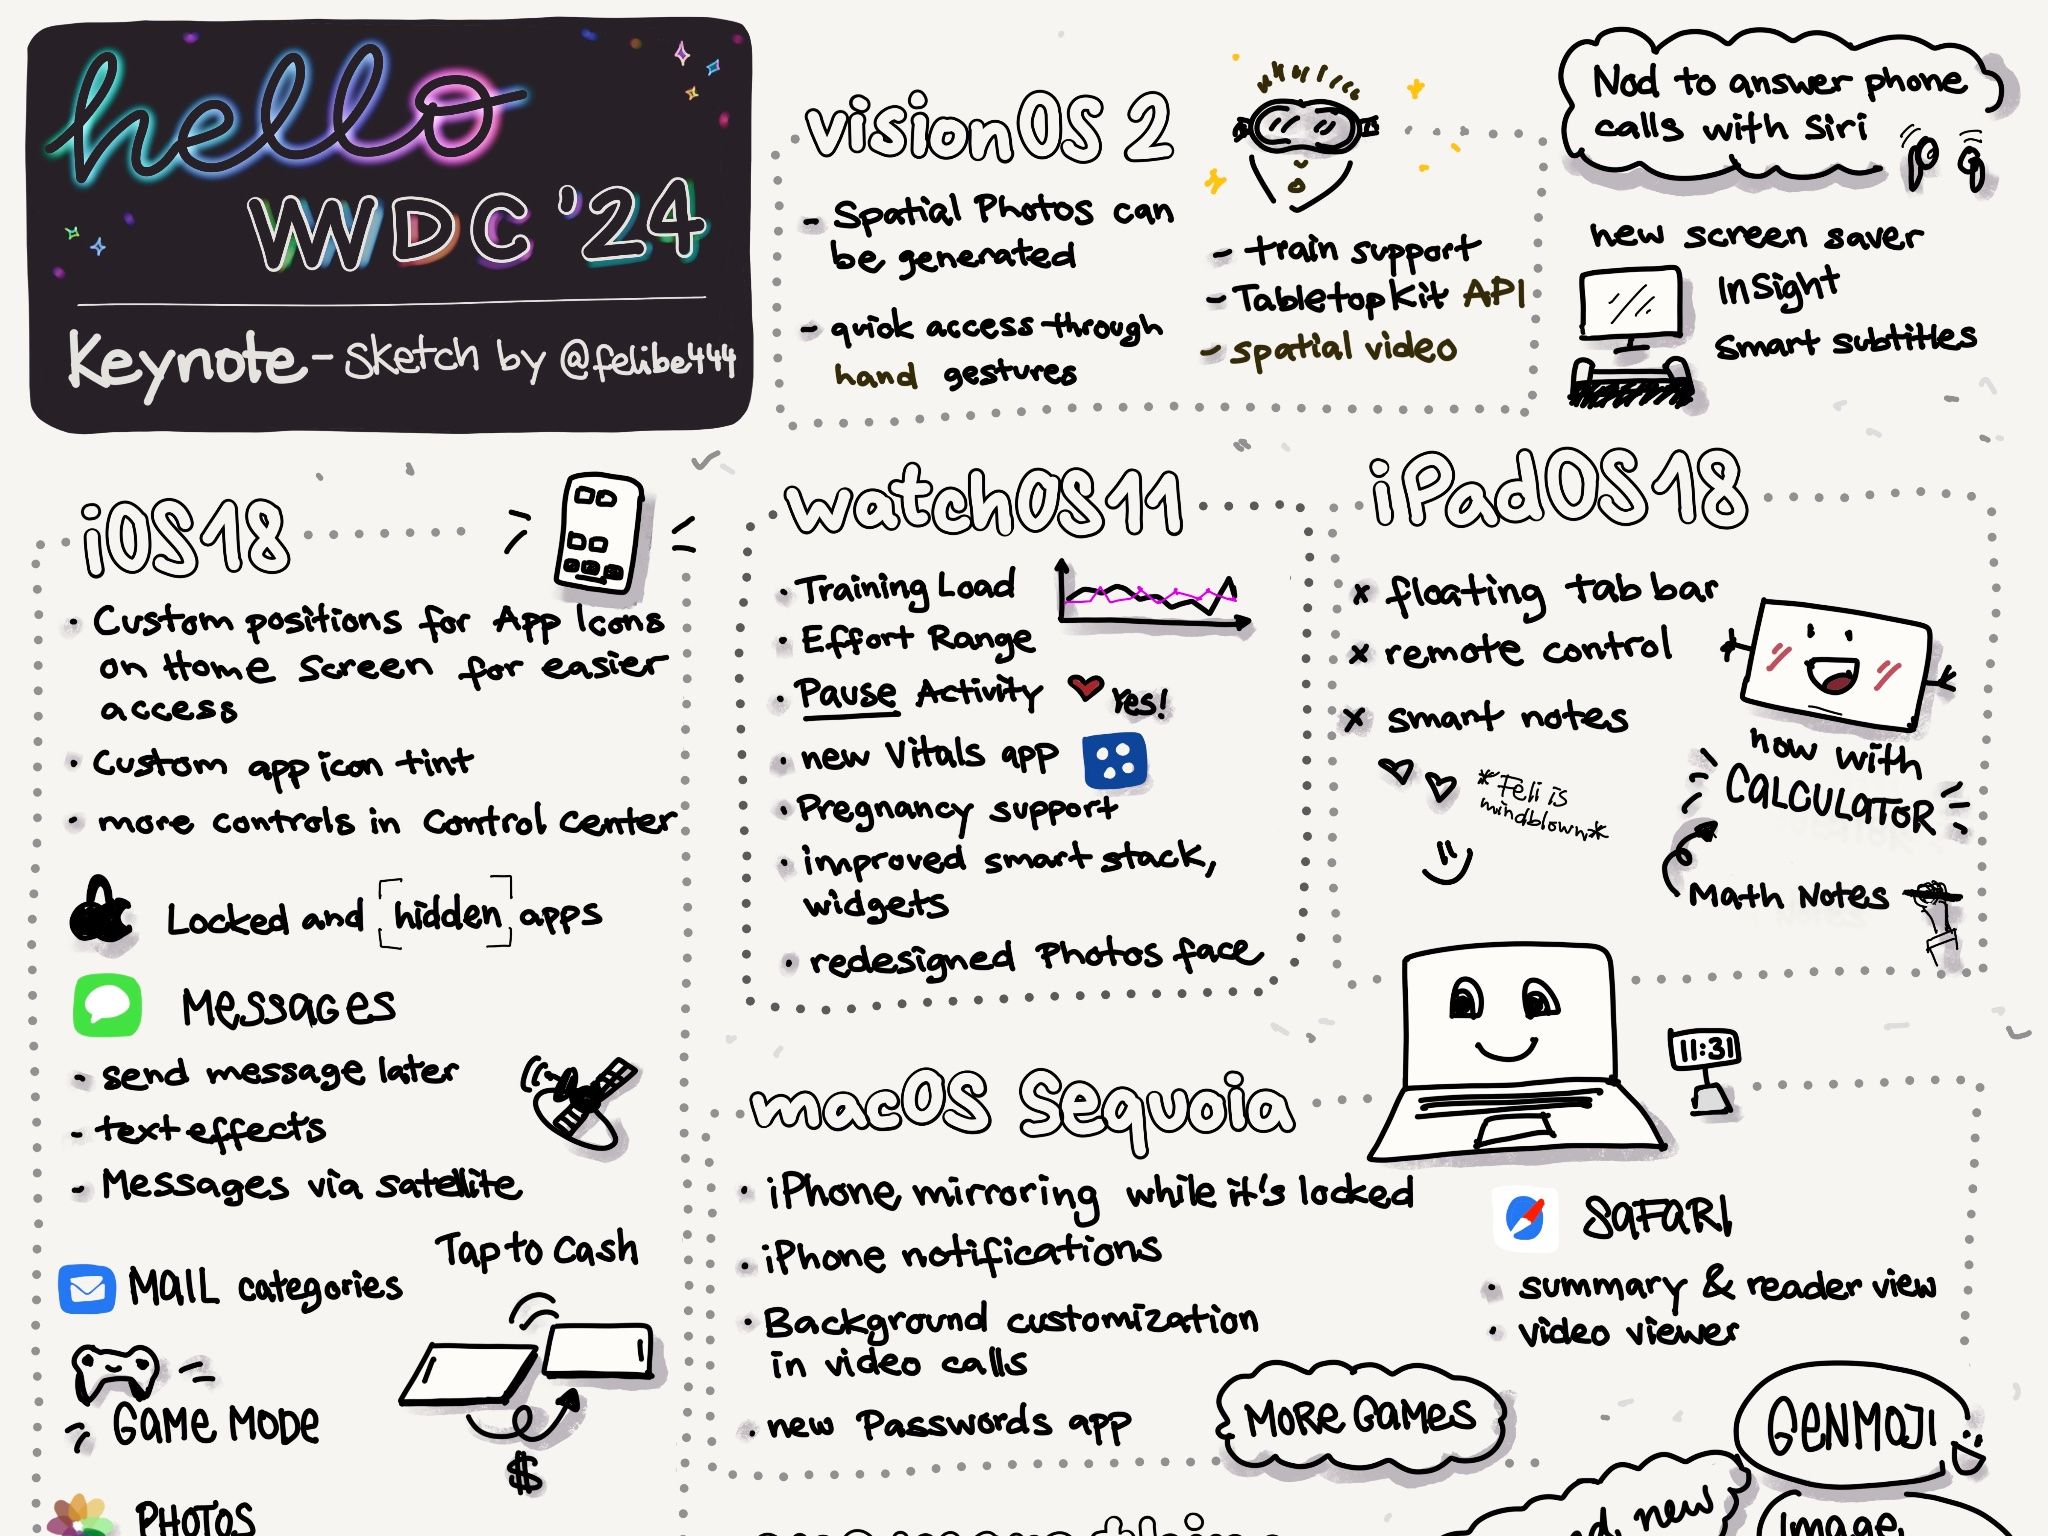 hello
WWDC '24
Keynote - Sketch by @felibe444
visionOS 2
- Spatial Photos can
be generated
- quick access through
hand gestures
- train support
- TabletopKit API
- spatial video
Nod to answer phone
calls with Siri
new screen saver
InSight
Smart subtitles
iOS18
· Custom positions for App Icons
on Home Screen for easier
access
· Custom app icon tint
· more controls in Control Center
Locked and hidden apps
Messages
- send message later
- text effects
- Messages via satellite
Tap to Cash
MAIL categories
$
GAME MODE
PHOTOS
watchOS11
· Training Load
· Effort Range
· Pause Activity
Yes!
· new Vitals app
· Pregnancy support
· improved smart stack,
widgets
· redesigned Photos face
iPadOS18
x floating tab bar
x remote control
x smart notes
*Feli is
mindblown*
now with
CALCULATOR
Math Notes
macOS Sequoia
11:31
· iPhone mirroring while it's locked
· iPhone notifications
· Background customization
in video calls
· new Passwords app
SAFARI
· summary & reader view
· video viewer
MORE GAMES
GENMOJI
new
Image